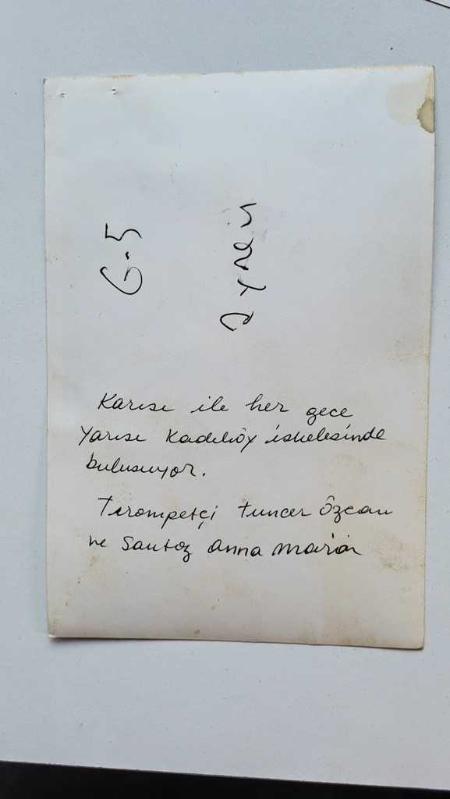 6-5
Karısı ile her gece
Yarısı Kadıköy iskelesinde
buluşuyor.
Tırompetçi tuncer Özcan
ve Santoz anna maria